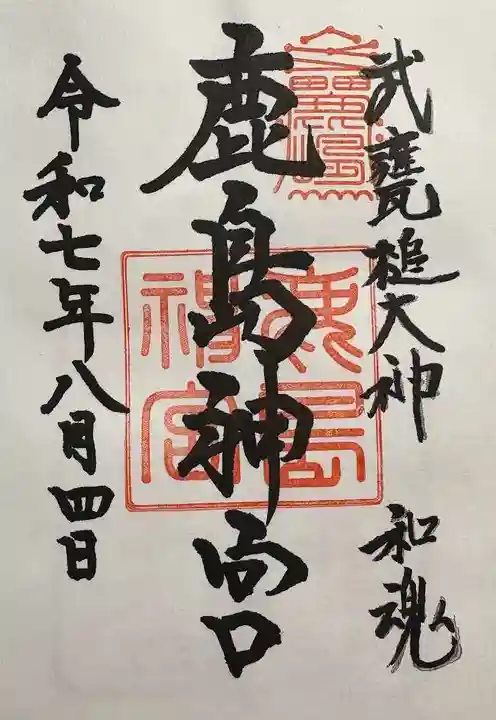 武甕槌大神 和魂
鹿島神宮
鹿島神宮
令和七年八月四日